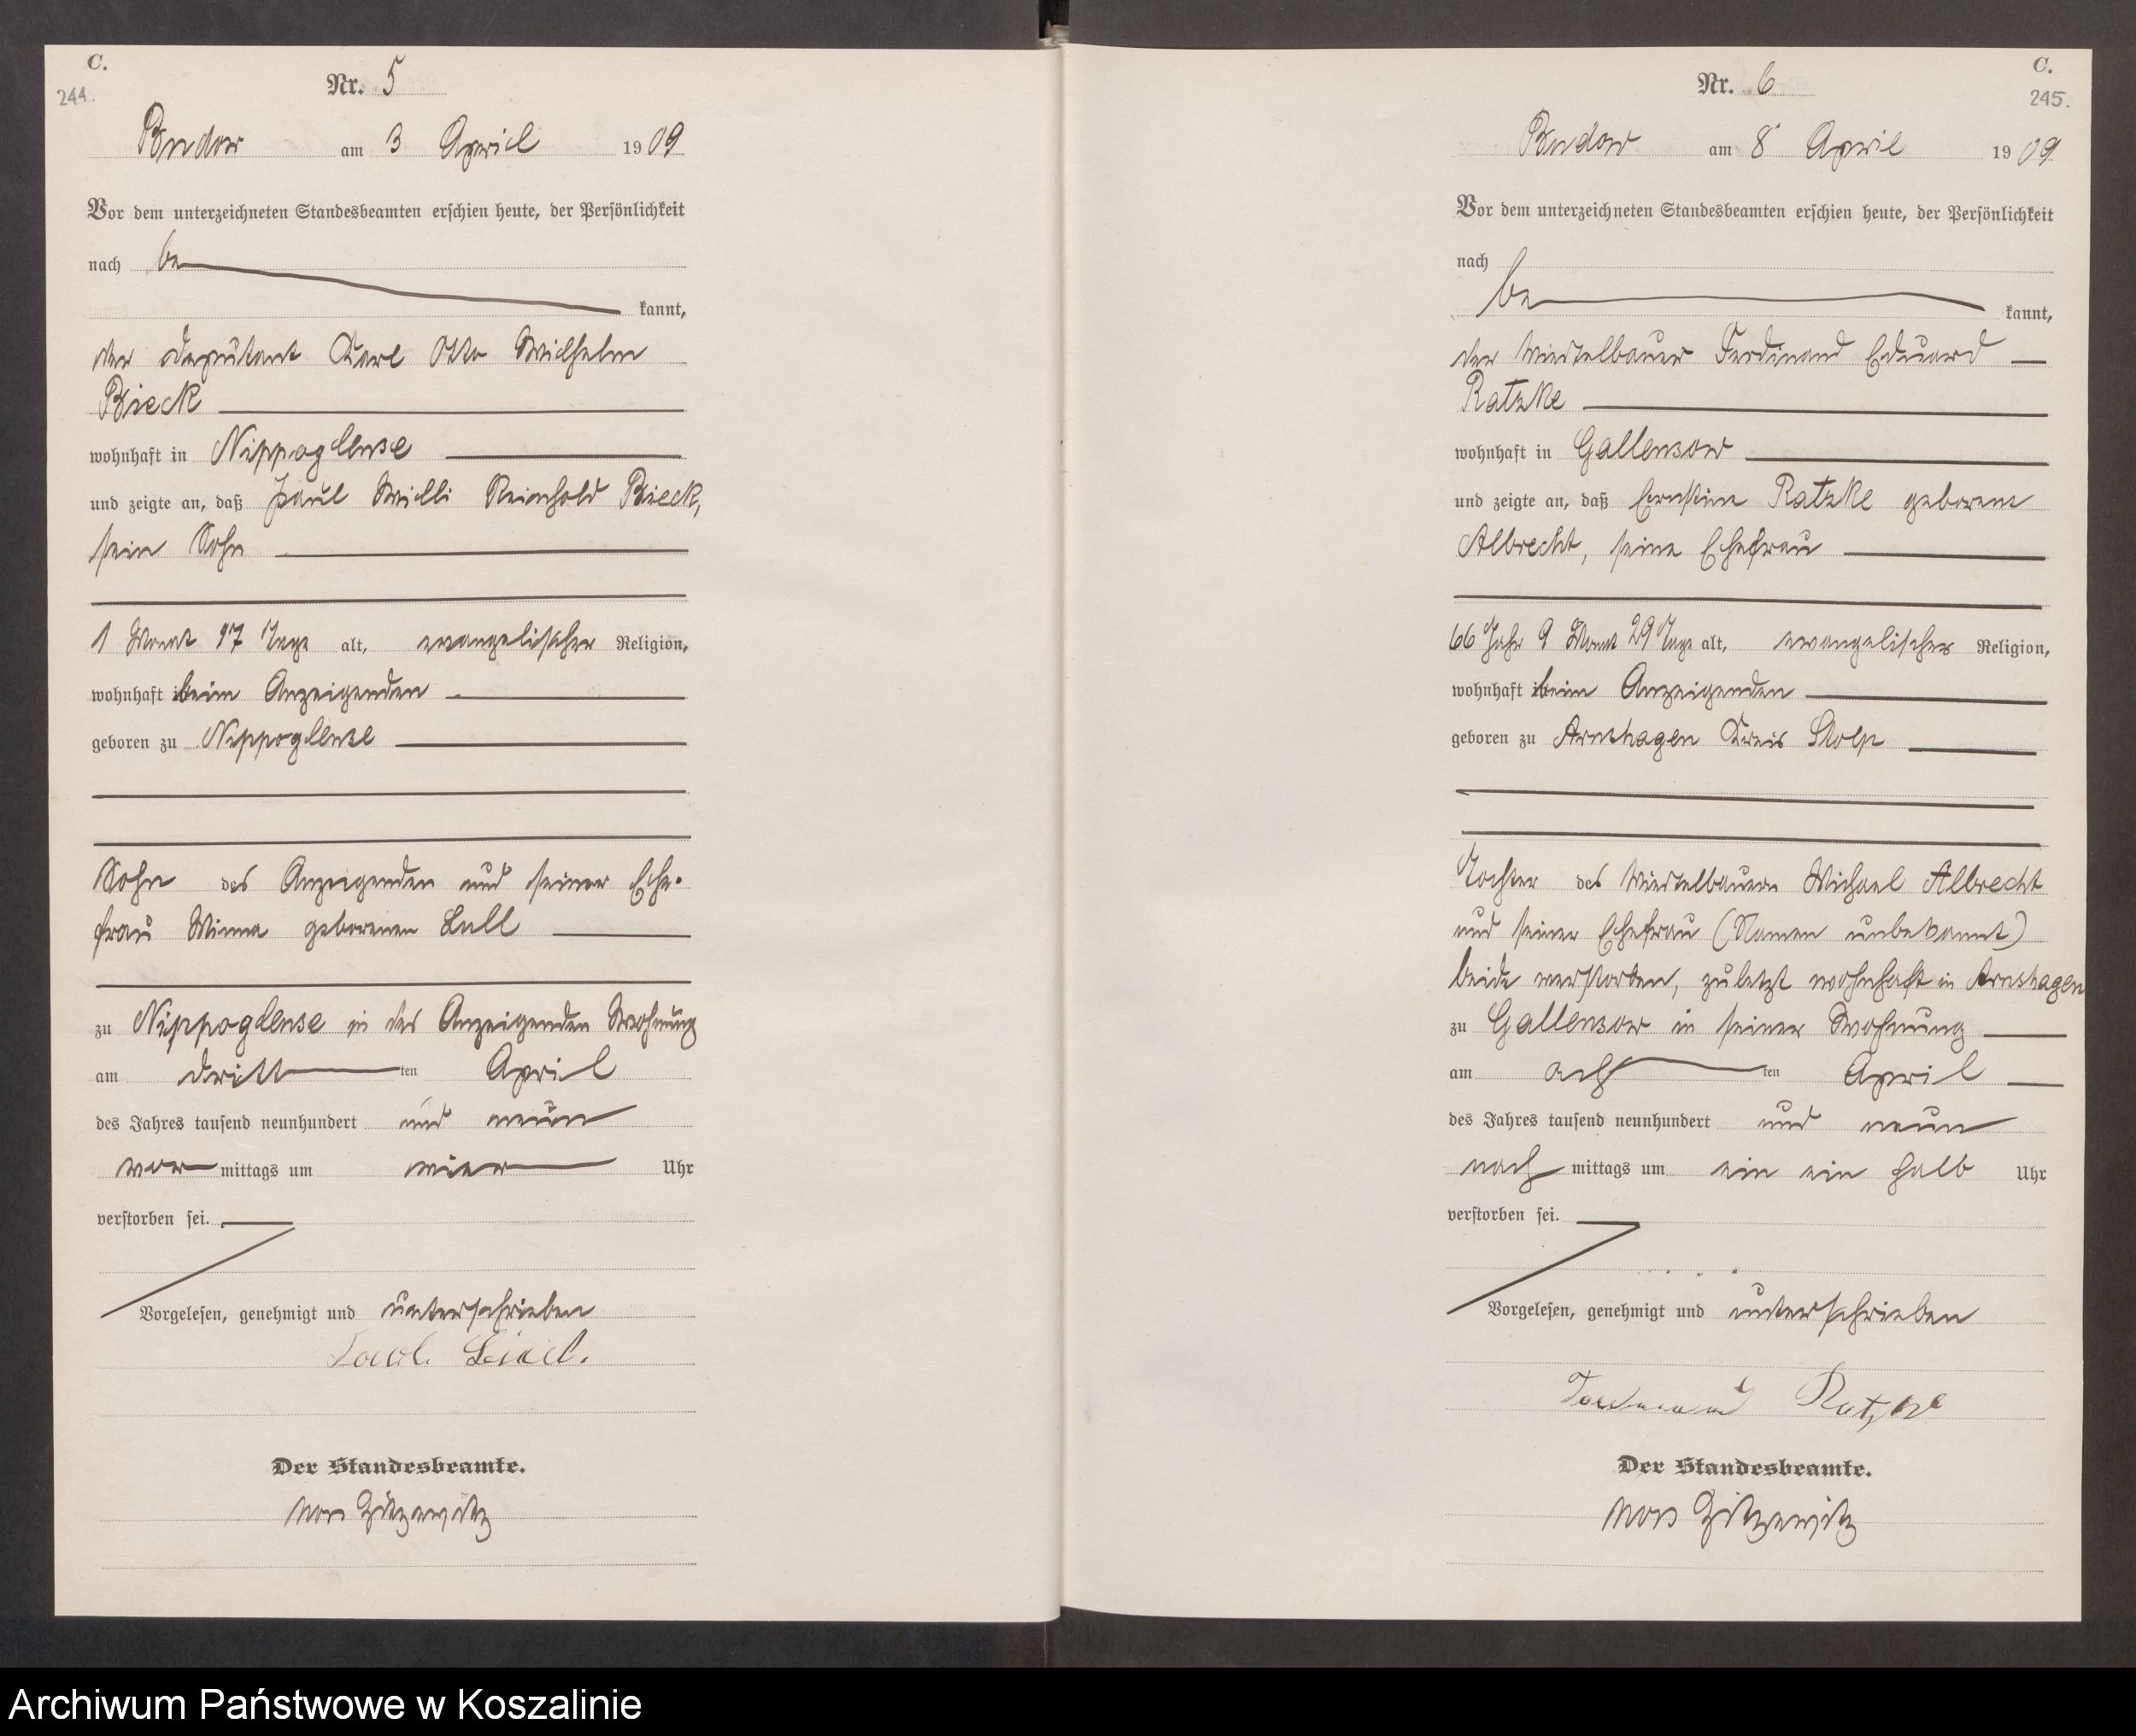 C.
244.
Nr. 5
Budow am 3 April 1909
Vor dem unterzeichneten Standesbeamten erschien heute, der Persönlichkeit
nach be
kannt,
der Deputant Karl Otto Wilhelm
Bieck
wohnhaft in Nippoglense
und zeigte an, daß Paul Willi Reinhold Bieck,
sein Sohn
1 Monat 17 Tage alt, evangelischer Religion,
wohnhaft beim Anzeigenden
geboren zu Nippoglense
Sohn des Anzeigenden und seiner Ehe-
frau Minna geborenen Lull
zu Nippoglense in des Anzeigenden Wohnung
am dritt ten April
des Jahres tausend neunhundert und neun
vor mittags um vier Uhr
verstorben sei.
Vorgelesen, genehmigt und unterschrieben
Der Standesbeamte.
von Zitzewitz
C.
245.
Nr. 6
Budow am 8 April 1909
Vor dem unterzeichneten Standesbeamten erschien heute, der Persönlichkeit
nach
be kannt,
der Viertelbauer Ferdinand Eduard
Ratzke
wohnhaft in Gallensow
und zeigte an, daß Ernstine Ratzke geborene
Albrecht, seine Ehefrau
66 Jahr 9 Monat 29 Tage alt, evangelischer Religion,
wohnhaft beim Anzeigenden
geboren zu Arnshagen Kreis Stolp
Tochter des Viertelbauern Michael Albrecht
und seiner Ehefrau (Namen unbekannt)
beide verstorben, zuletzt wohnhaft in Arnshagen
zu Gallensow in seiner Wohnung
am ach ten April
des Jahres tausend neunhundert und neun
nach mittags um ein ein halb Uhr
verstorben sei.
Vorgelesen, genehmigt und unterschrieben
Ferdinand Ratzke
Der Standesbeamte.
von Zitzewitz
Archiwum Państwowe w Koszalinie